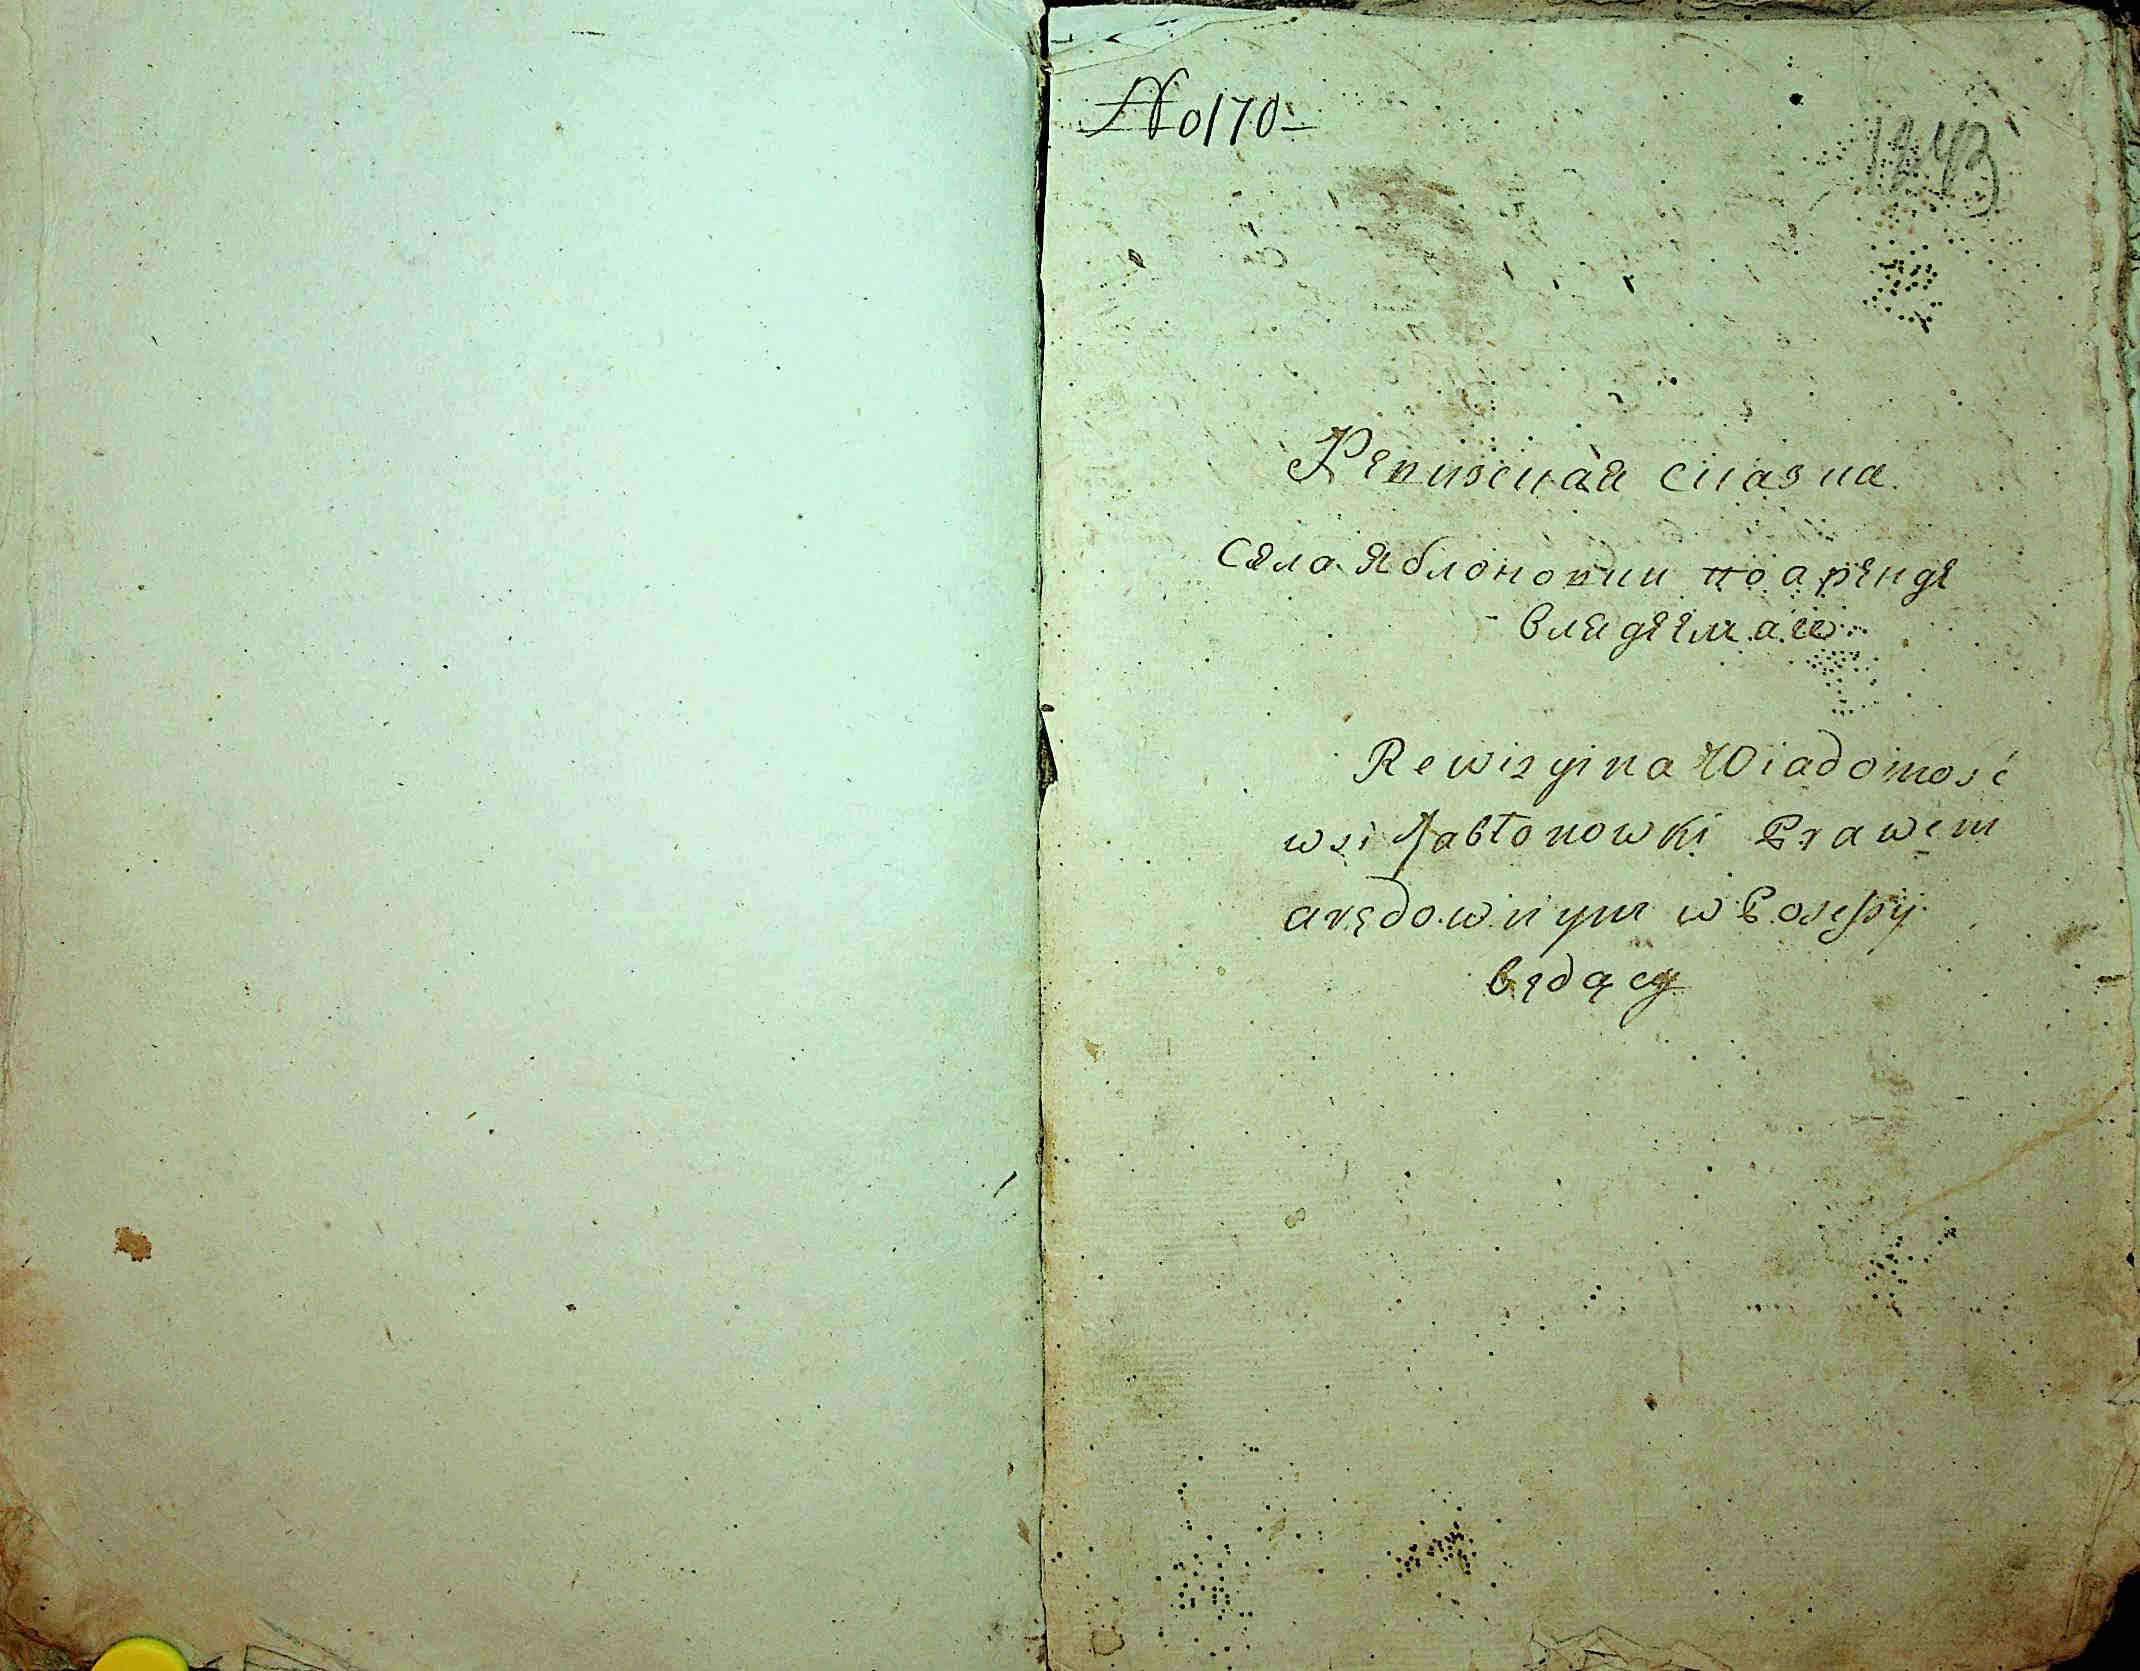 No 170
1243
Ревизская сказка
села Яблоновки по аренде
владеемаго
Rewizyina Wiadomość
wsi Jabłonowki Prawem
arędownym w Posessyi
będący